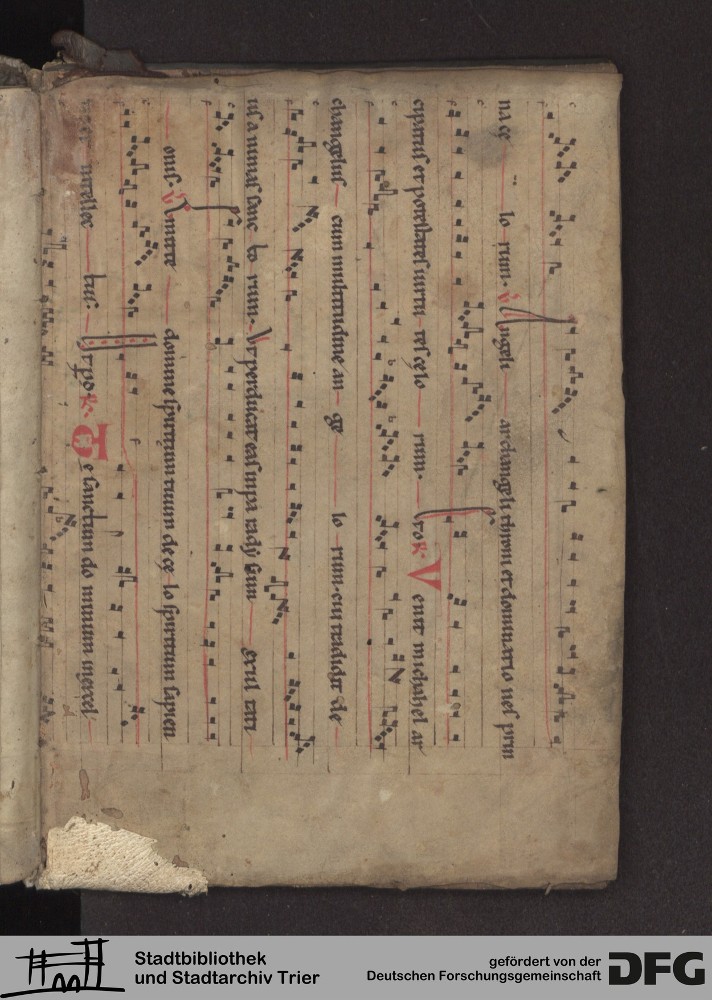 na ce lo rum. V Angeli archangeli throni et dominatio nes prin
cipatus et potestates uirtu tes celo rum. R Venit michahel ar
changelus cum multitudine an ge lo rum. cui tradidit de
us animas sanc to rum. Vt perducat eas in pa radysum exul tati
onis. V Emitte domine spiritum tuum de ce lo spiritum sapien
et intellec tus. Vt R. Te sanctum do minum in excel
Stadtbibliothek
und Stadtarchiv Trier
gefördert von der
Deutschen Forschungsgemeinschaft
DFG